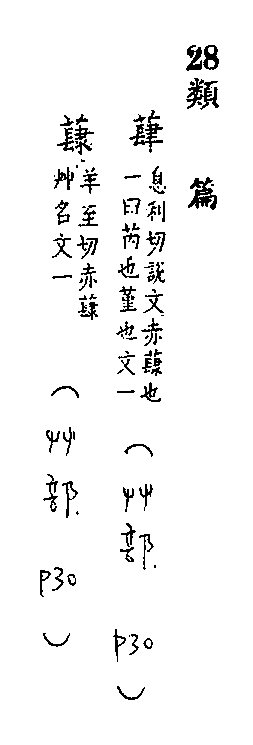 28類篇
息利切說文赤也
一曰芮也堇也文一
（艸部 P30）
羊至切赤
艸名文一
（艸部 P30）